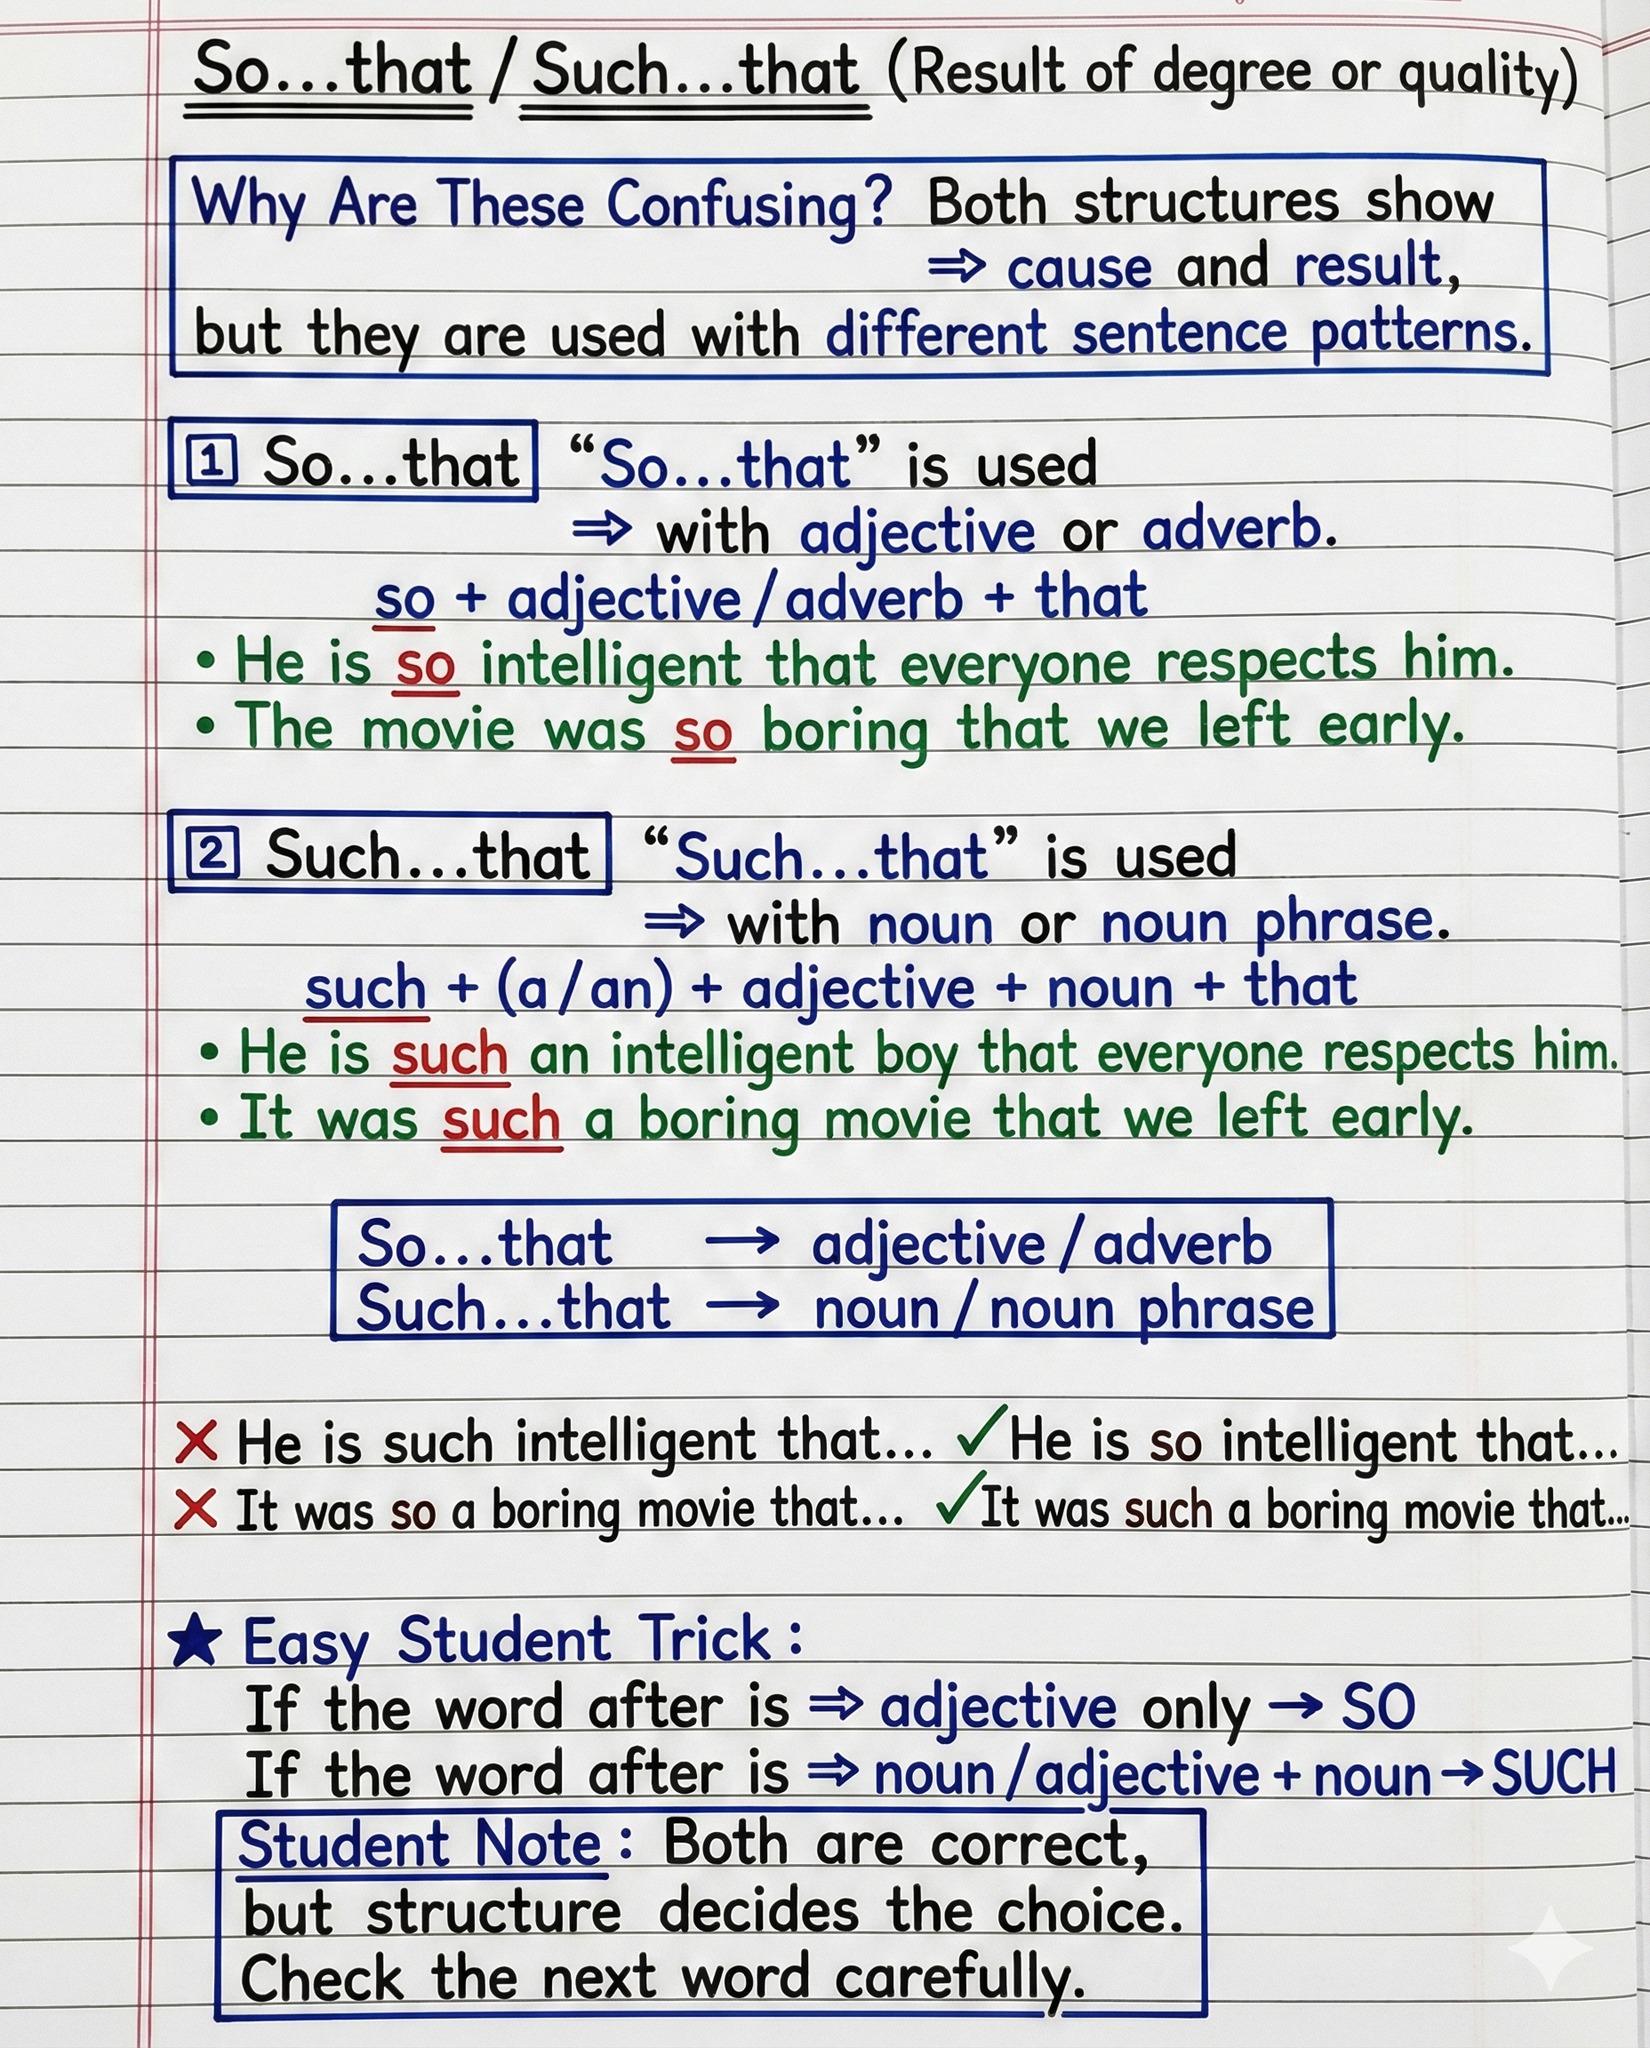 So...that / Such...that (Result of degree or quality)
Why Are These Confusing? Both structures show
⇒ cause and result,
but they are used with different sentence patterns.
1 So...that "So...that" is used
⇒ with adjective or adverb.
so + adjective/adverb + that
• He is so intelligent that everyone respects him.
• The movie was so boring that we left early.
2 Such...that "Such...that" is used
⇒ with noun or noun phrase.
such + (a/an) + adjective + noun + that
• He is such an intelligent boy that everyone respects him.
• It was such a boring movie that we left early.
So...that → adjective/adverb
Such...that → noun/noun phrase
✗ He is such intelligent that... ✓ He is so intelligent that...
✗ It was so a boring movie that... ✓ It was such a boring movie that...
★ Easy Student Trick:
If the word after is ⇒ adjective only → SO
If the word after is ⇒ noun/adjective + noun → SUCH
Student Note: Both are correct,
but structure decides the choice.
Check the next word carefully.